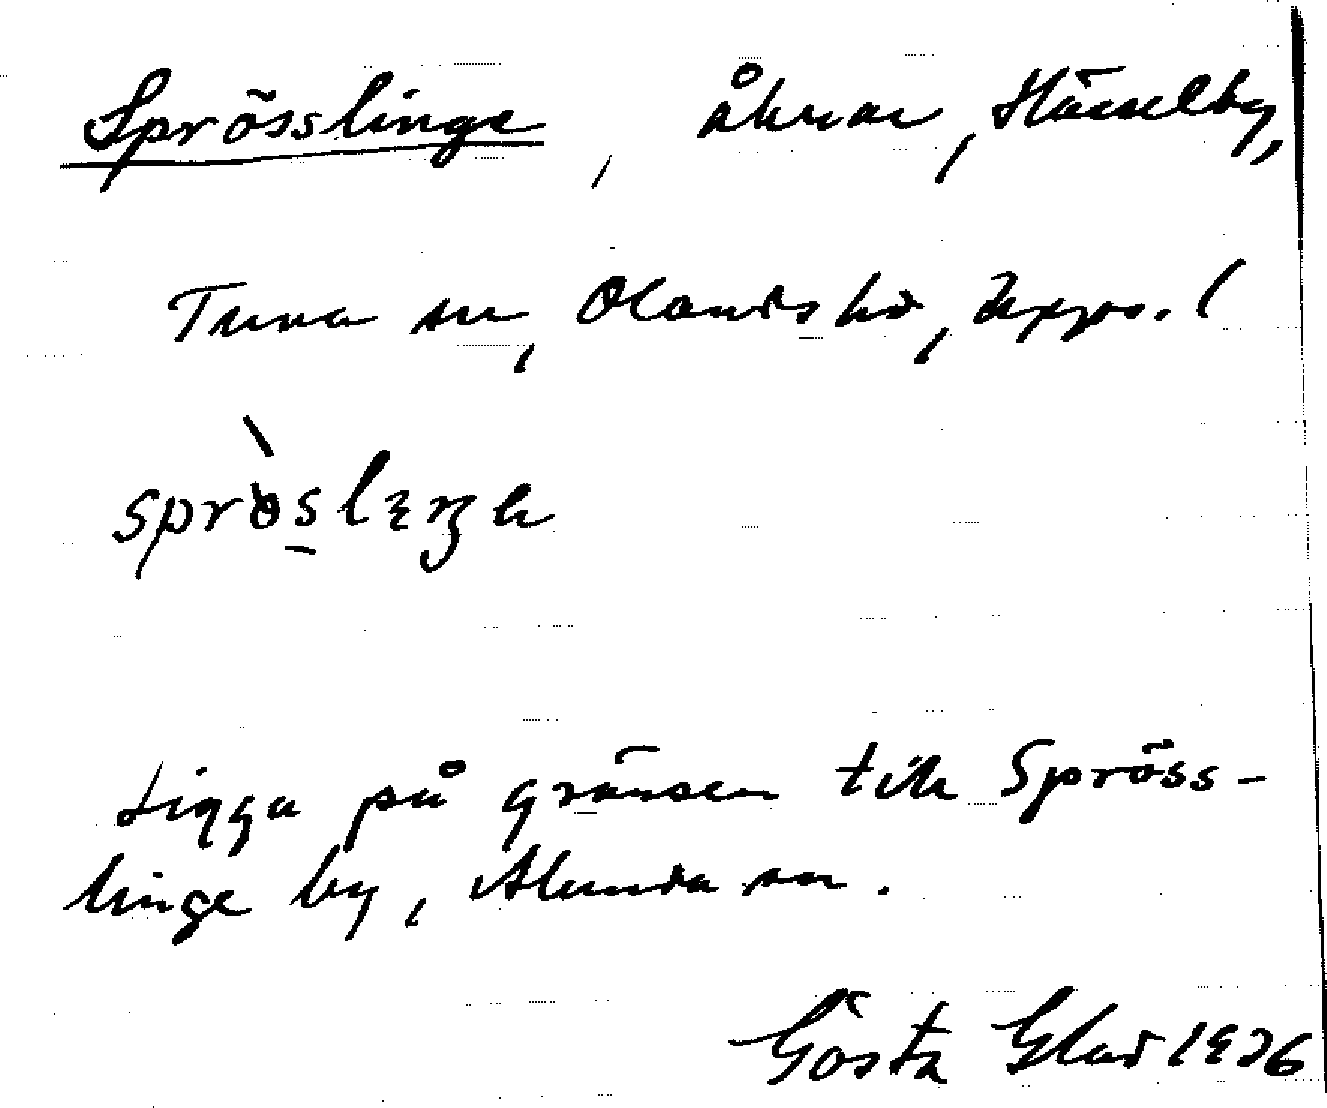 Sprösslinge, åkrar, Hässelby,
Tuna sn, Olands hd, Upps. l
Ligga på gränsen till Spröss-
linge by, Alunda sn.
Gösta Glad 1936